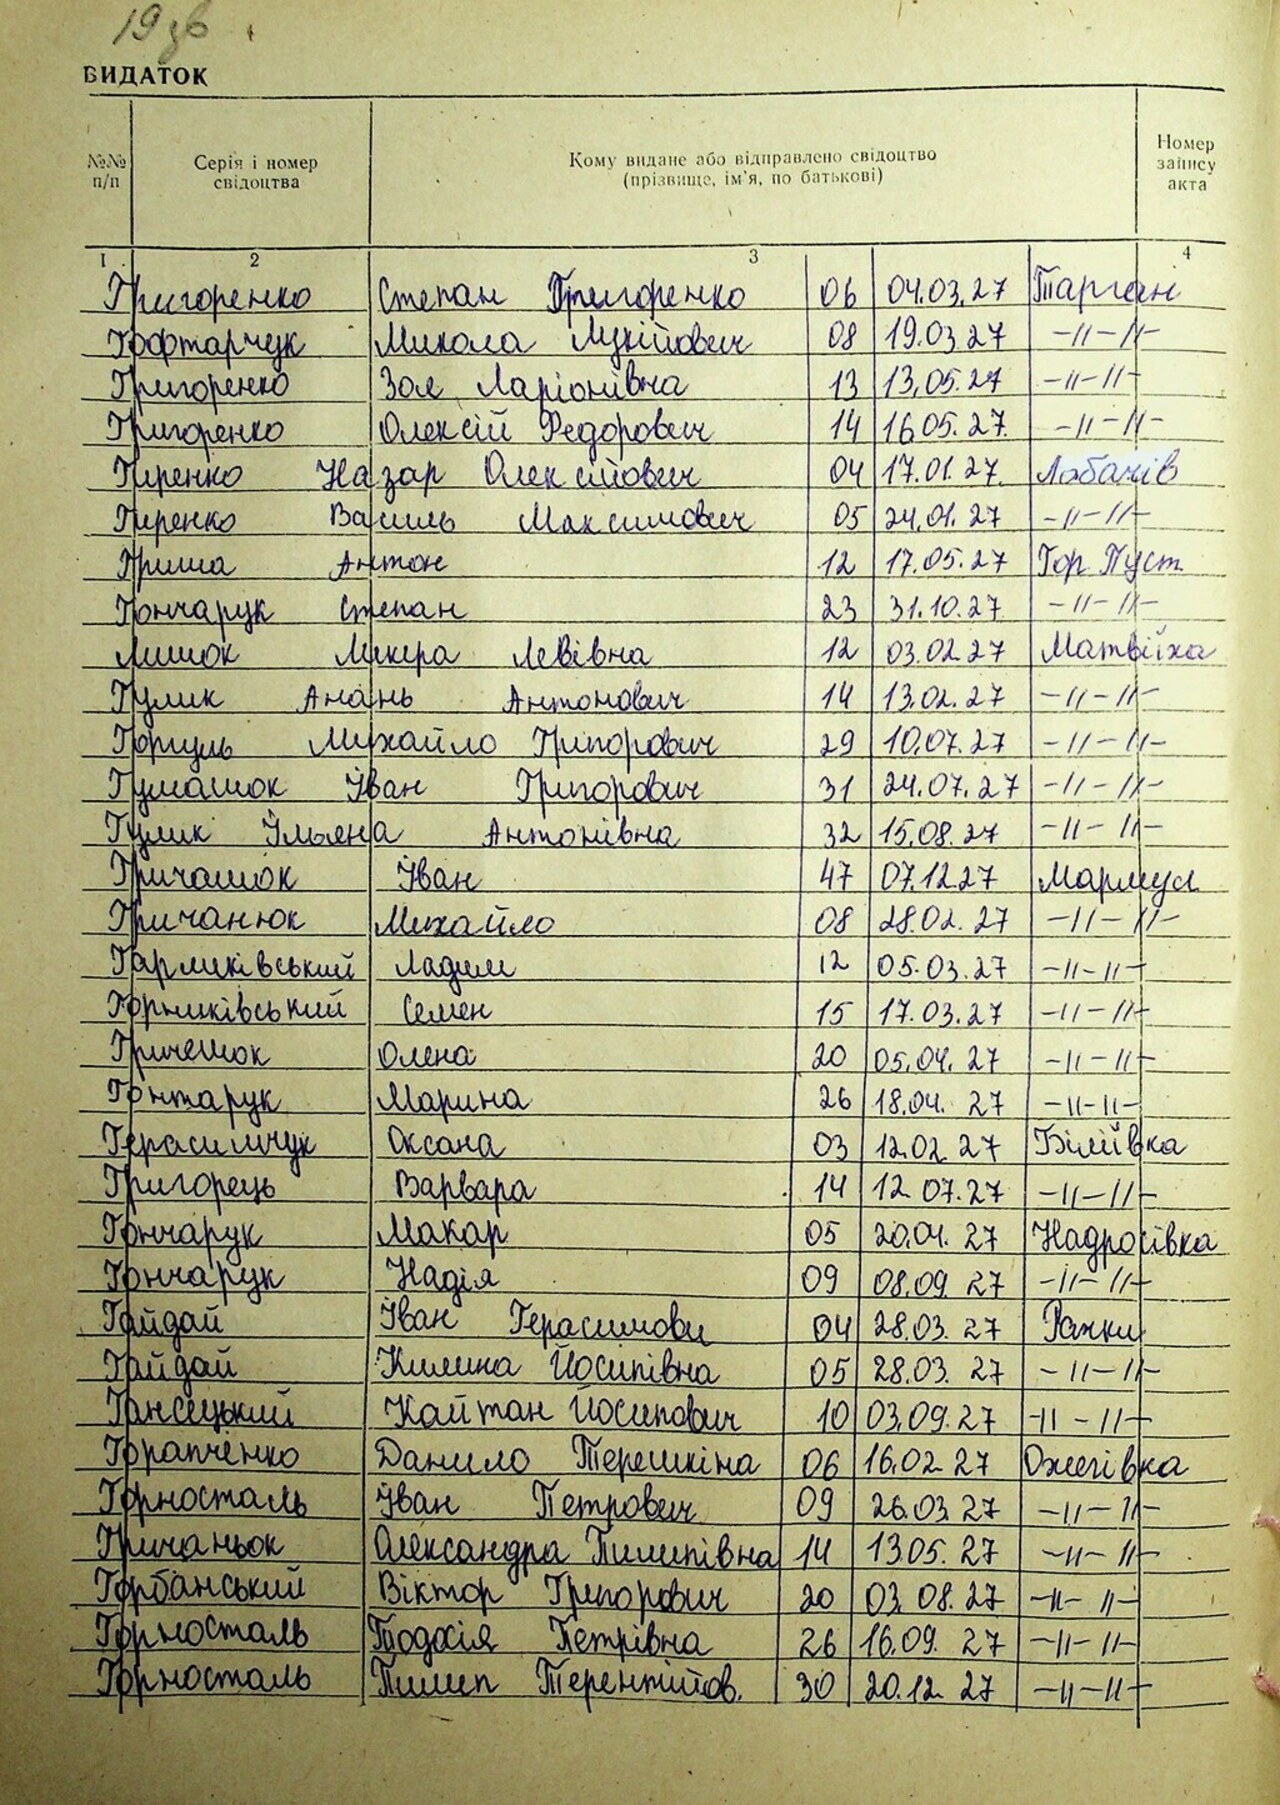 19зв
ВИДАТОК
№№ п/п
Серія і номер свідоцтва
Кому видане або відправлено свідоцтво
(прізвище, ім'я, по батькові)
Номер запису акта
1 2 3 4
Григоренко Степан Григоренко 06 04.03.27 Тарган
Гофтарчук Микола Лукійович 08 19.03 27 -"-"-
Григоренко Зоя Ларіонівна 13 13.05.27 -"-"-
Григоренко Олексій Федорович 14 16 05.27. -"-"-
Гиренко Назар Олексійович 04 17.01.27. Лобачів
Гиренко Василь Максимович 05 24.01.27 -"-"-
Гриша Антон 12 17.05.27 Гор Пуст
Гончарук Степан 23 31.10.27 -"-"-
Лишок Ликера Левівна 12 03.02.27 Матвіїха
Гулик Анань Антонович 14 13.02.27 -"-"-
Горгуль Михайло Григорович 29 10.07.27 -"-"-
Гумашок Іван Григорович 31 24.07.27 -"-"-
Гулик Ульяна Антонівна 32 15.08.27 -"-"-
Гричашок Іван 47 07.12.27
Гричанюк Михайло 08 28.02.27 -"-"-
Гармиківський 12 05.03.27 -"-"-
Горликівський Семен 15 17.03.27 -"-"-
Гричешок Олена 20 05.04.27 -"-"-
Гонтарук Марина 26 18.04.27 -"-"-
Герасимчук Оксана 03 12.02 27 Біліївка
Григорець Варвара 14 12 07.27 -"-"-
Гончарук Макар 05 20.04.27 Надросівка
Гончарук Надія 09 08.09 27 -"-"-
Гайдай Іван Герасимови 04 28.03.27 Рачки
Гайдай Килина Йосипівна 05 28.03.27 -"-"-
Гансецький Кайтан Йосипович 10 03.09.27 -"-"-
Горапченко Данило Терешкіна 06 16.02 27 Ожегівка
Горносталь Іван Петрович 09 26.03.27 -"-"-
Гричаньок Олександра Пилипівна 14 13.05.27 -"-"-
Горбанський Віктор Григорович 20 03 08.27 -"-"-
Горносталь Тодосія Петрівна 26 16.09.27 -"-"-
Горносталь Пилип Терентійов. 30 20.12.27 -"-"-